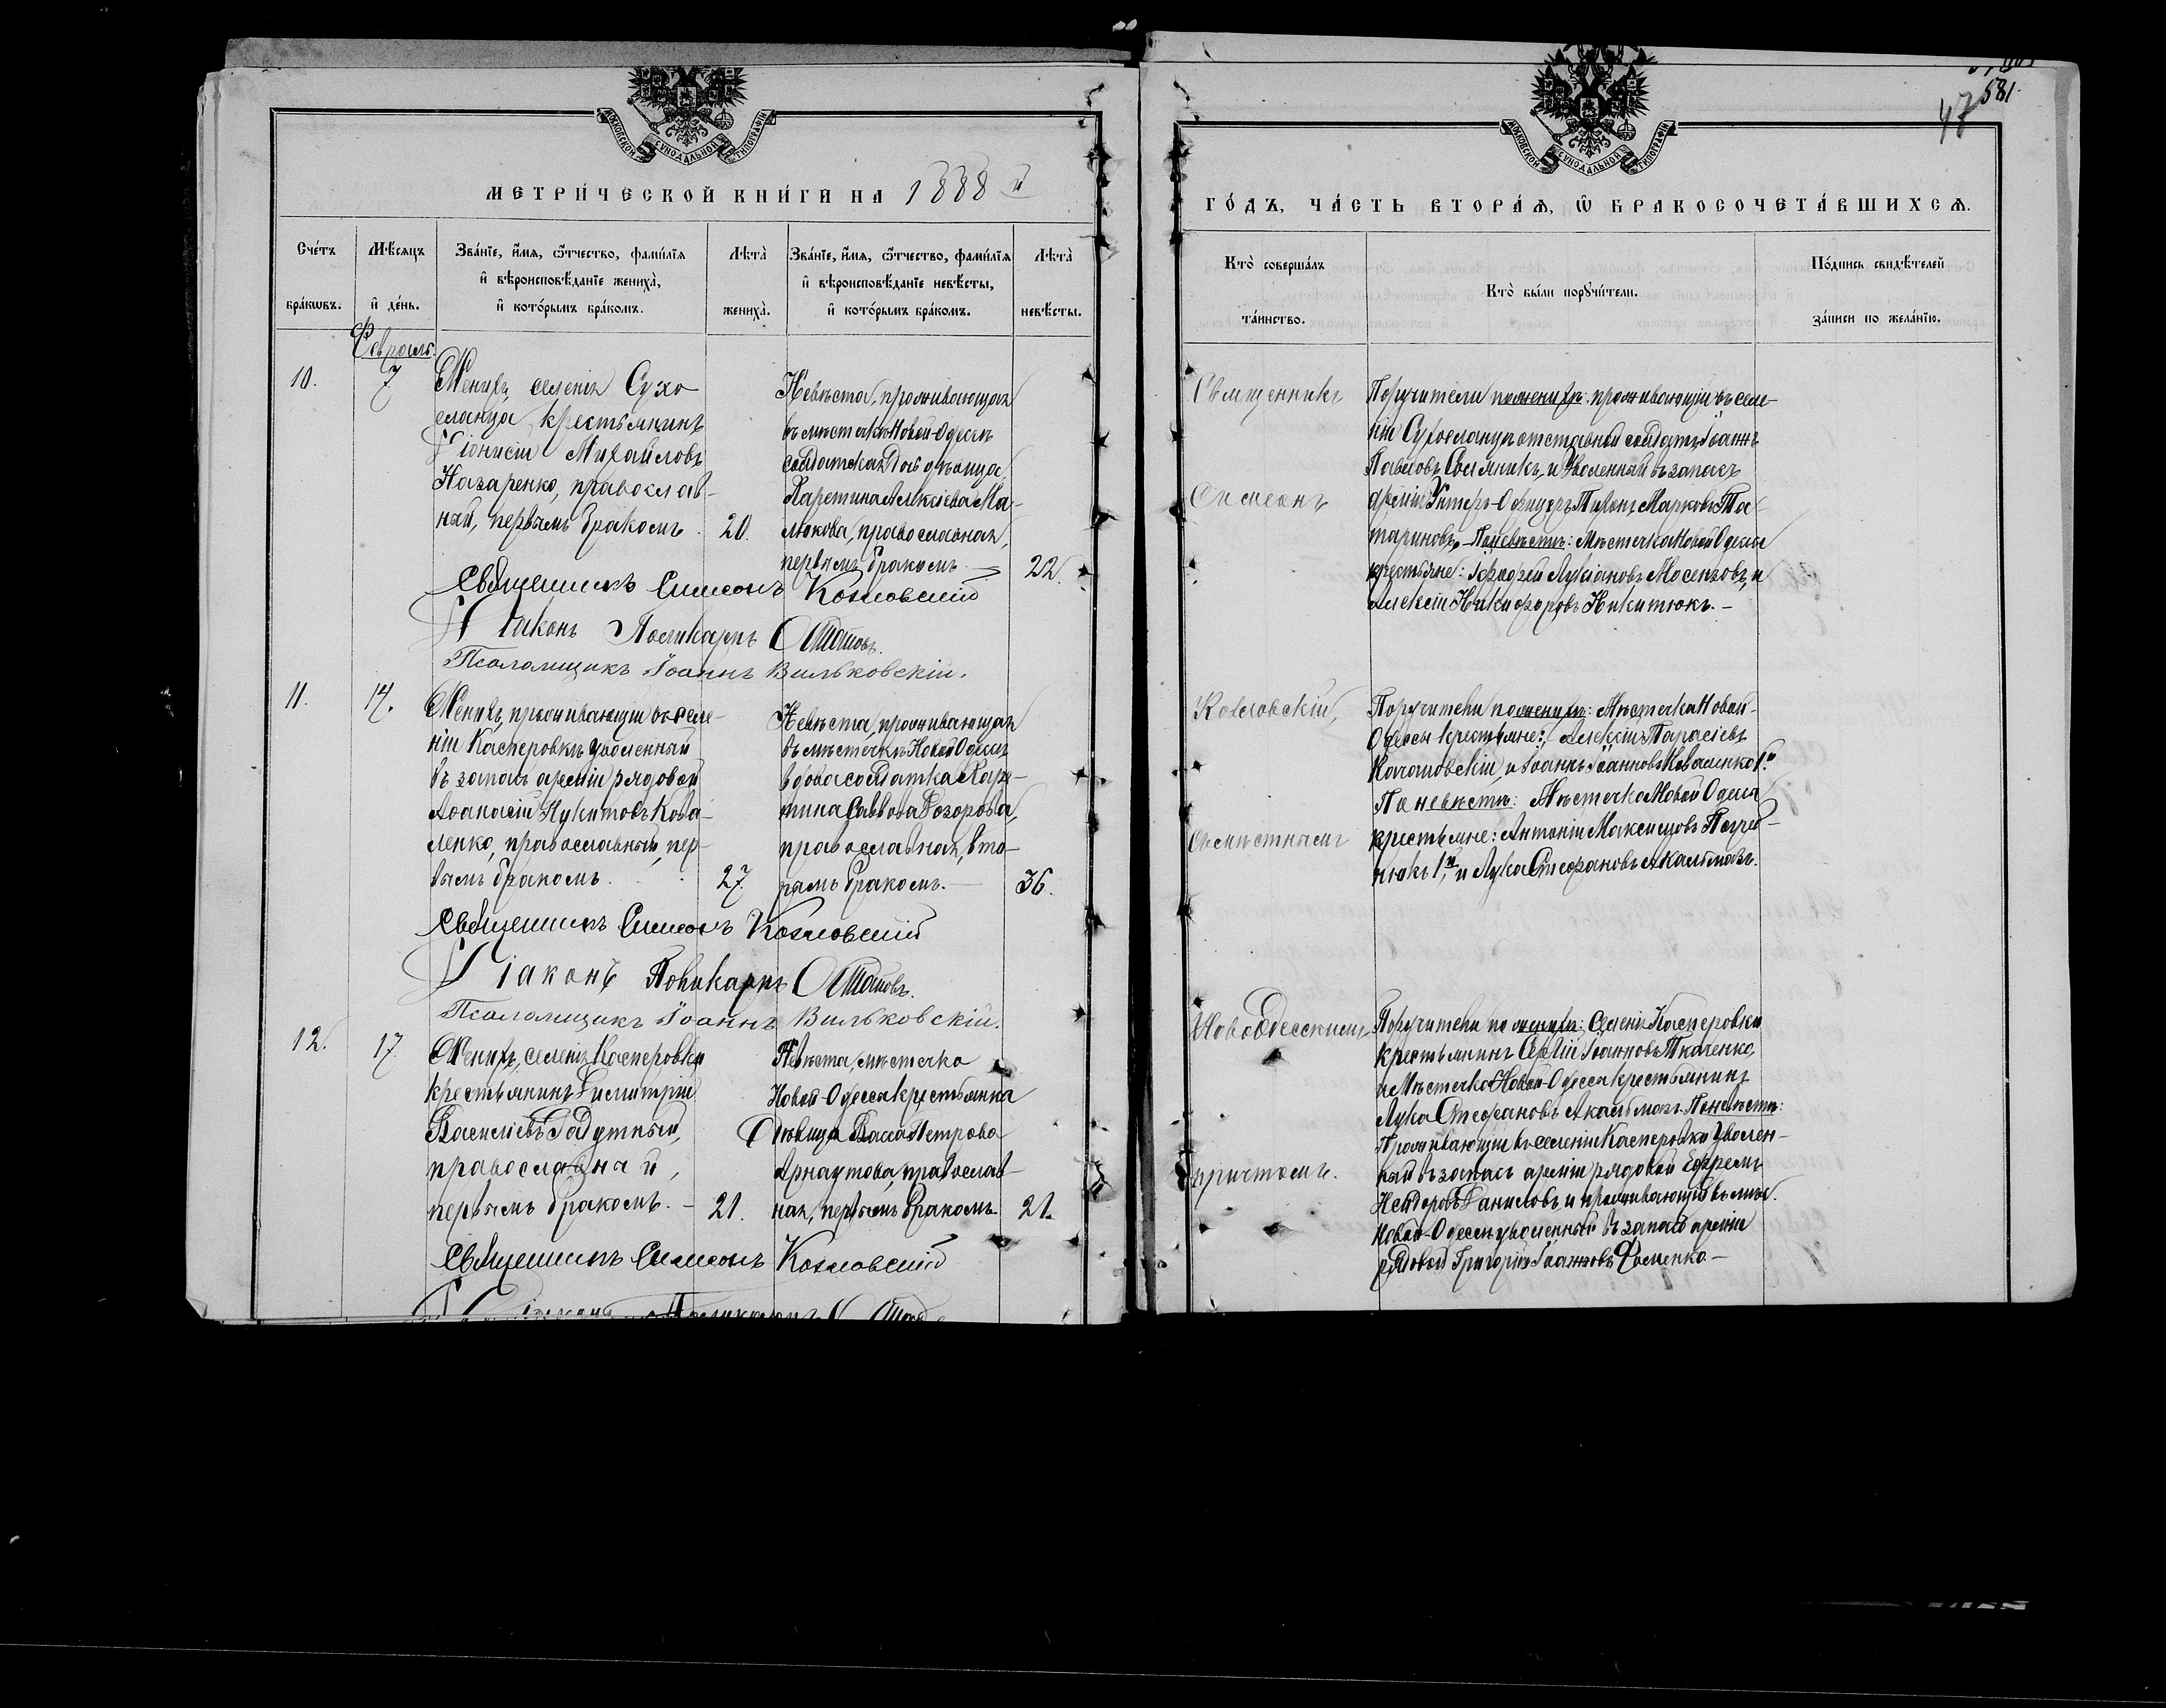 581.
48
МОСКОВСКОЙ СѴНОДАЛЬНОЙ ТИПОГРАФІИ
МЕТРИ́ЧЕСКОЙ КНИ́ГИ НА 1888 й
Сче́тъ бра́ковъ.
Мѣ́сяцъ и҆ де́нь.
Зва́нїе, и҆́мя, ѻ҆́тчество, фами́лїя
и҆ вѣроисповѣ́данїе жениха̀,
и҆ кото́рымъ бра́комъ.
Лѣта̀ жениха̀.
Зва́нїе, и҆́мя, ѻ҆́тчество, фами́лїя
и҆ вѣроисповѣ́данїе невѣ́сты,
и҆ кото́рымъ бра́комъ.
Лѣта̀ невѣ́сты.
Февраль.
10.
7
Женихъ, селенія Сухо
еланца крестьянинъ
Діонисій Михайловъ
Назаренко, православ-
ный, первымъ бракомъ.
20.
Невѣста, проживающая
въ мѣстечкѣ Новой-Одессѣ
солдатская дочь дѣвица,
Харетина Алексіева Ма-
люкова, православная,
первымъ бракомъ
22.
Священникъ Симеонъ Козловскій
Діаконъ Поликарпъ
Псаломщикъ Іоаннъ Вильковскій.
11.
14.
Женихъ, проживающій въ селе-
ніи Касперовкѣ уволенный
въ запасъ арміи рядовой
Аѳанасій Никитовъ Кова-
ленко, православный, пер-
вымъ бракомъ.
27.
Невѣста, проживающая
въ мѣстечкѣ Новой Одессѣ
вдова солдатка Харе-
тина Саввова
православная, вто-
рымъ бракомъ.
36.
Священникъ Симеонъ Козловскій
Діаконъ Поликарпъ
Псаломщикъ Іоаннъ Вильковскій.
12.
17.
Женихъ, селенія Касперовки
крестьянинъ Димитрій
Василіевъ
православный,
первымъ бракомъ. -
21.
Невѣста, мѣстечка
Новой-Одесса крестьянка
Дѣвица Васса Петрова
Арнаутова, православ-
ная, первымъ бракомъ
21.
Священникъ Симеонъ Козловскій
Діаконъ Поликарпъ
МОСКОВСКОЙ СѴНОДАЛЬНОЙ ТИПОГРАФІИ
ГО́ДЪ, ЧА́СТЬ ВТОРА́Я, Ѽ БРАКОСОЧЕТА́ВШИХСЯ.
Кто̀ соверша́лъ та́инство.
Кто̀ бы́ли порꙋчи́тели.
По́дпись свидѣ́телей за́писи по жела́нїю.
Священникъ
Симеонъ
Козловскій,
съ мѣстнымъ
Ново Одесскимъ
причтомъ.
Поручители по женихѣ: проживающій въ селе-
ніи Сухоеланцѣ отставной солдатъ Іоаннъ
Павловъ и Уволенный въ запасъ
арміи Унтеръ-Офицеръ Тихонъ Марковъ Та-
тариновъ. - По невѣстѣ: Мѣстечка Новой Одессы
крестьяне: Лукіановъ Мосензовъ, и
Алексій Никифоровъ Никитюкъ. -
Поручители по женихѣ: Мѣстечка Новой-
Одессы крестьяне: Алексій Тарасіевъ
и Іоаннъ Іоанновъ Коваленко 1й
По невѣстѣ: Мѣстечка Новой Одесса
крестьяне: Антоній Максимовъ Погреб-
нюкъ 1й, и Лука Стефановъ Акальмазъ.
Поручители по женихѣ: Селенія Касперовки
крестьянинъ Сергій Іоанновъ Ткаченко,
и Мѣстечка Новой-Одесса крестьянинъ
Лука Стефановъ Акальмазъ. По невѣстѣ:
Проживающіе въ селеніи Касперовки Уволен-
ный въ запасъ арміи рядовой Ефремъ
Несторовъ Даниловъ и проживающій въ мѣс.
Новой-Одессѣ уволенный въ запасъ арміи
рядовой Григорій Іоанновъ Фоменко -